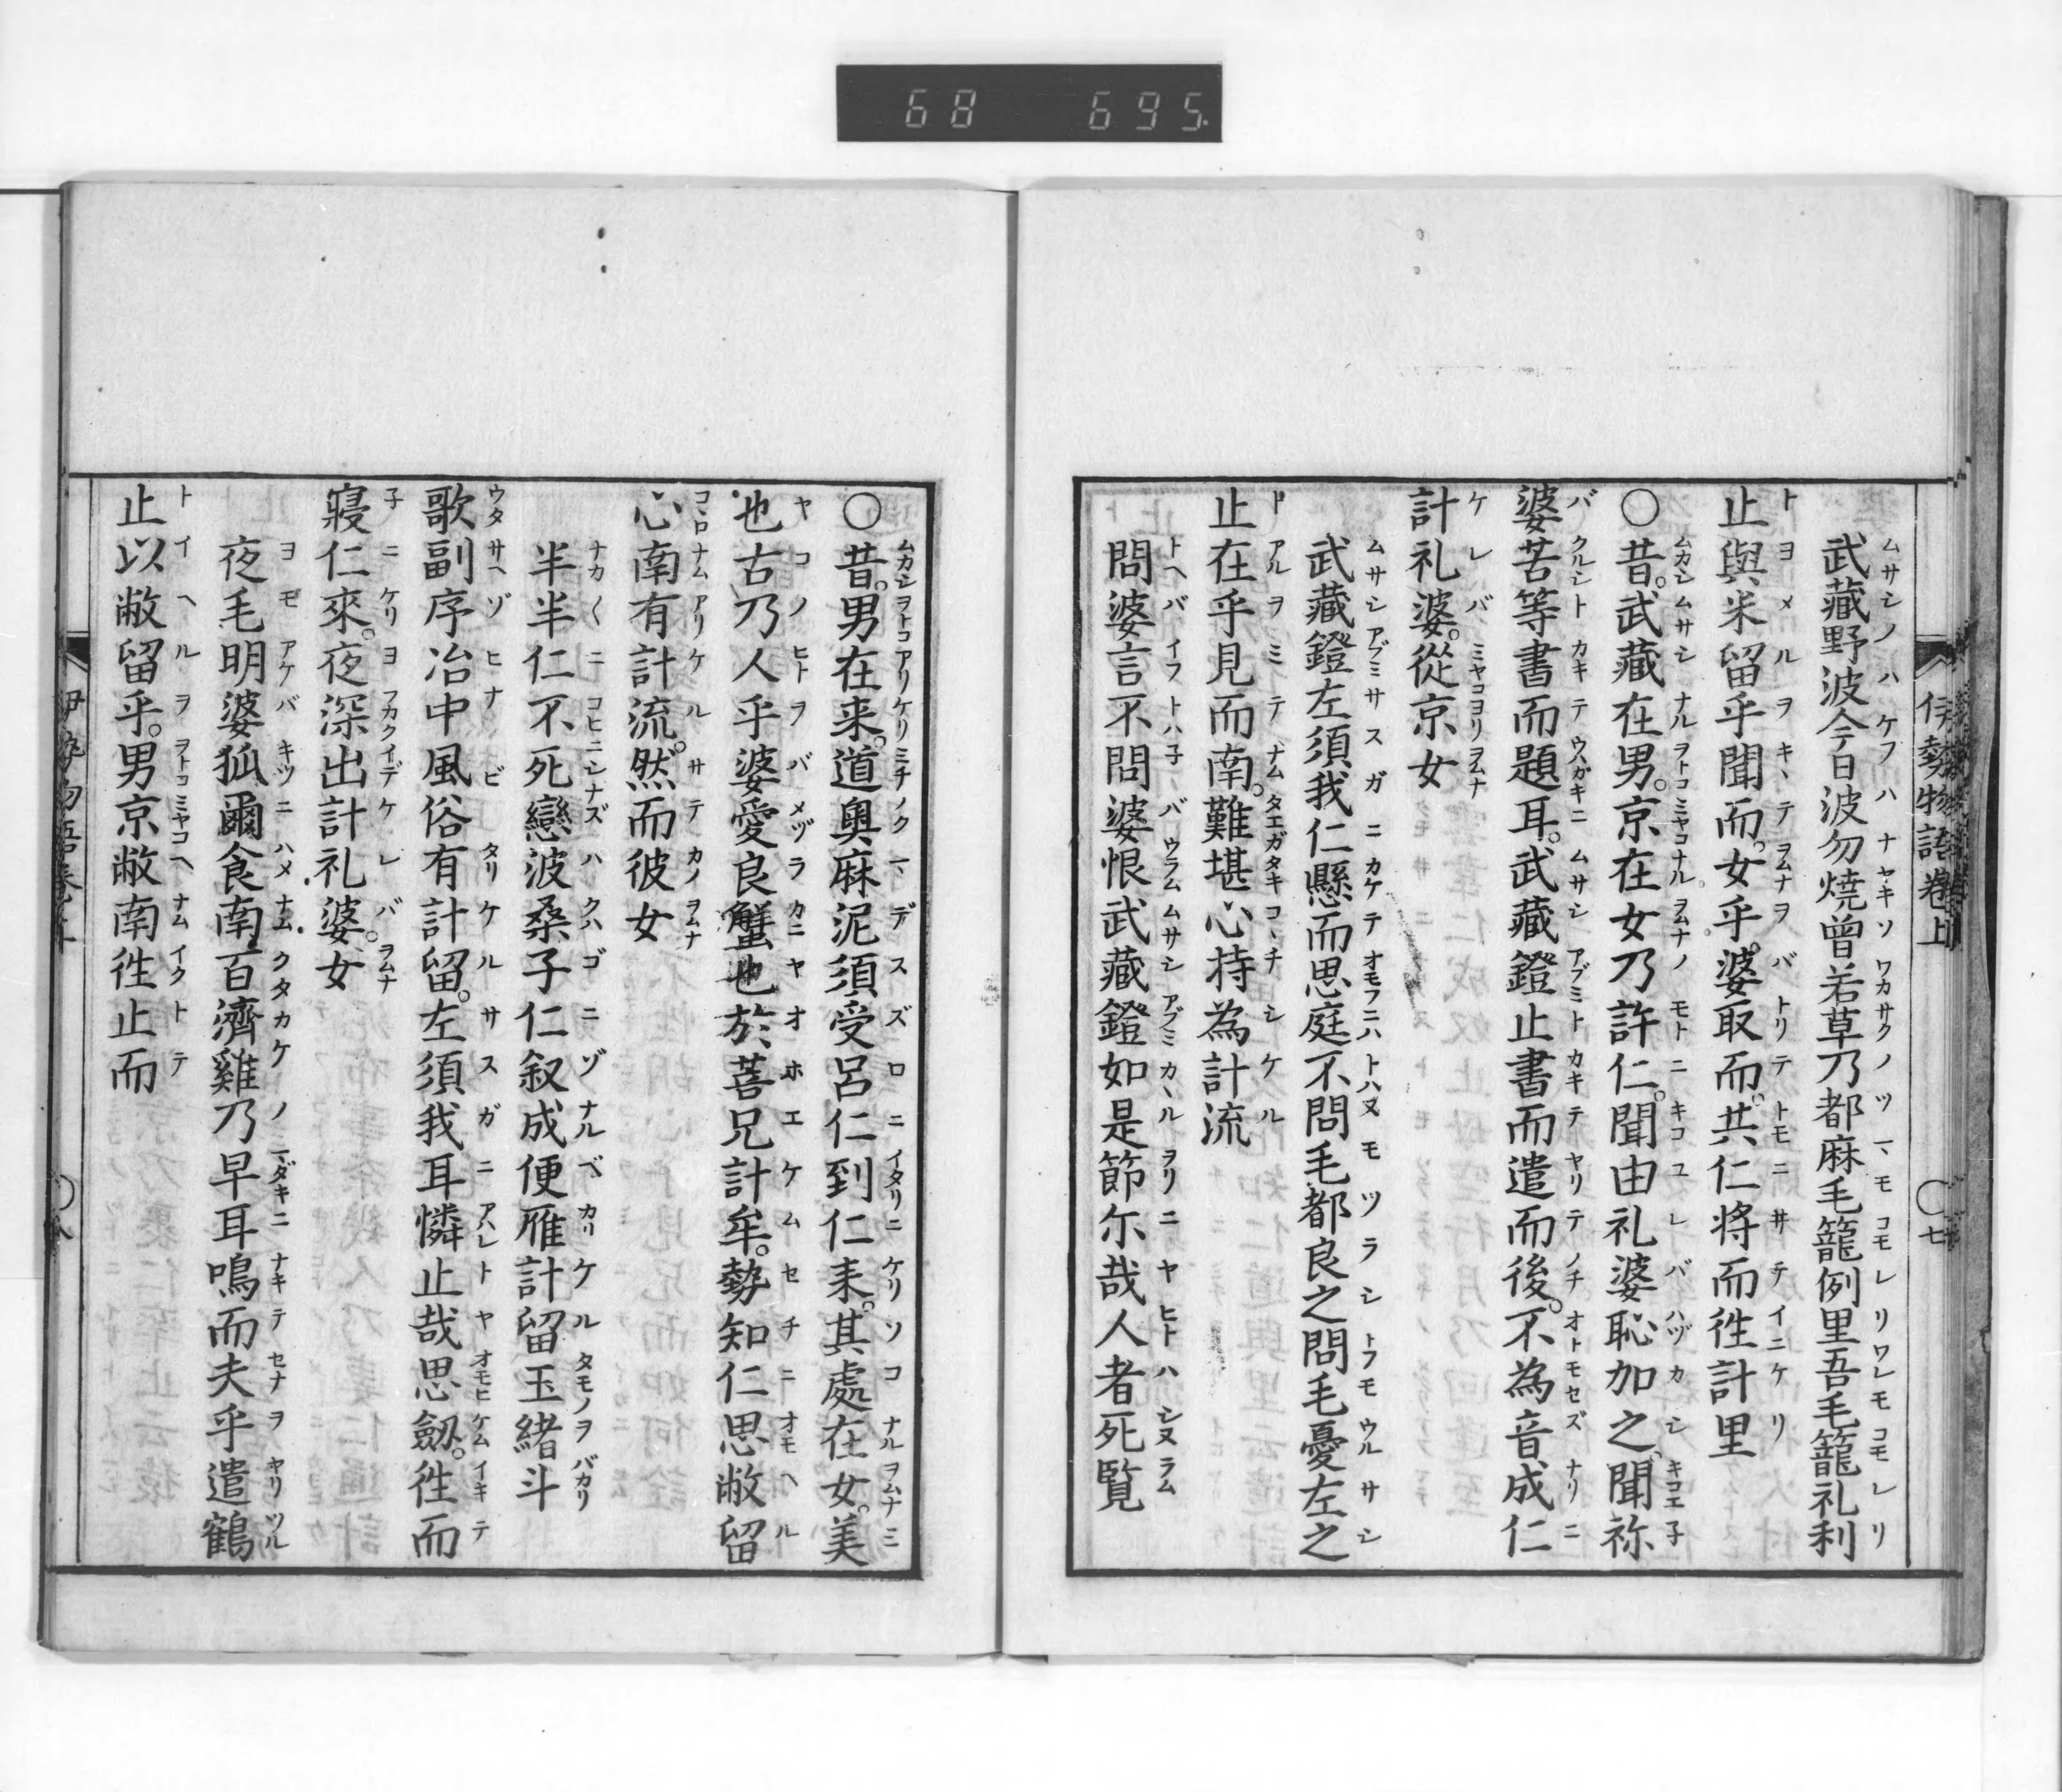 68 695
伊勢物語卷上
七
武藏野波今日波勿燒曾若草乃都麻毛籠例里吾毛籠礼利
止與米留乎聞而。女乎婆取而。共仁将而徃計里
○昔。武藏在男。京在女乃許仁。聞由礼婆恥加之聞祢
婆苦等書而題耳。武藏鐙止書而遣而後。不為音成仁
計礼婆。從京女
武藏鐙左須我仁懸而思庭不問毛都良之問毛憂左之
止在乎見而南。難堪心持為計流
問婆言不問婆恨武藏鐙如是節尓哉人者死覧
○昔。男在来。道奥麻泥須受呂仁到仁来。其處在女。美
也古乃人乎婆愛良蟹也於菩兄計牟。勢知仁思敝留
心南有計流。然而彼女
半半仁不死戀波桑子仁叙成便雁計留玉緒斗
歌副序冶中風俗有計留。左須我耳憐止哉思劔。徃而
寝仁來。夜深出計礼婆。女
夜毛明婆狐爾食南百濟雞乃早耳鳴而夫乎遣鶴
止以敝留乎。男京敝南徃止而